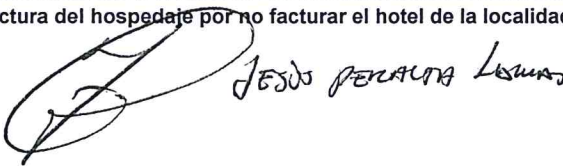 ctura del hospedaje por no facturar el hotel de la localidad
JESÚS PERALTA